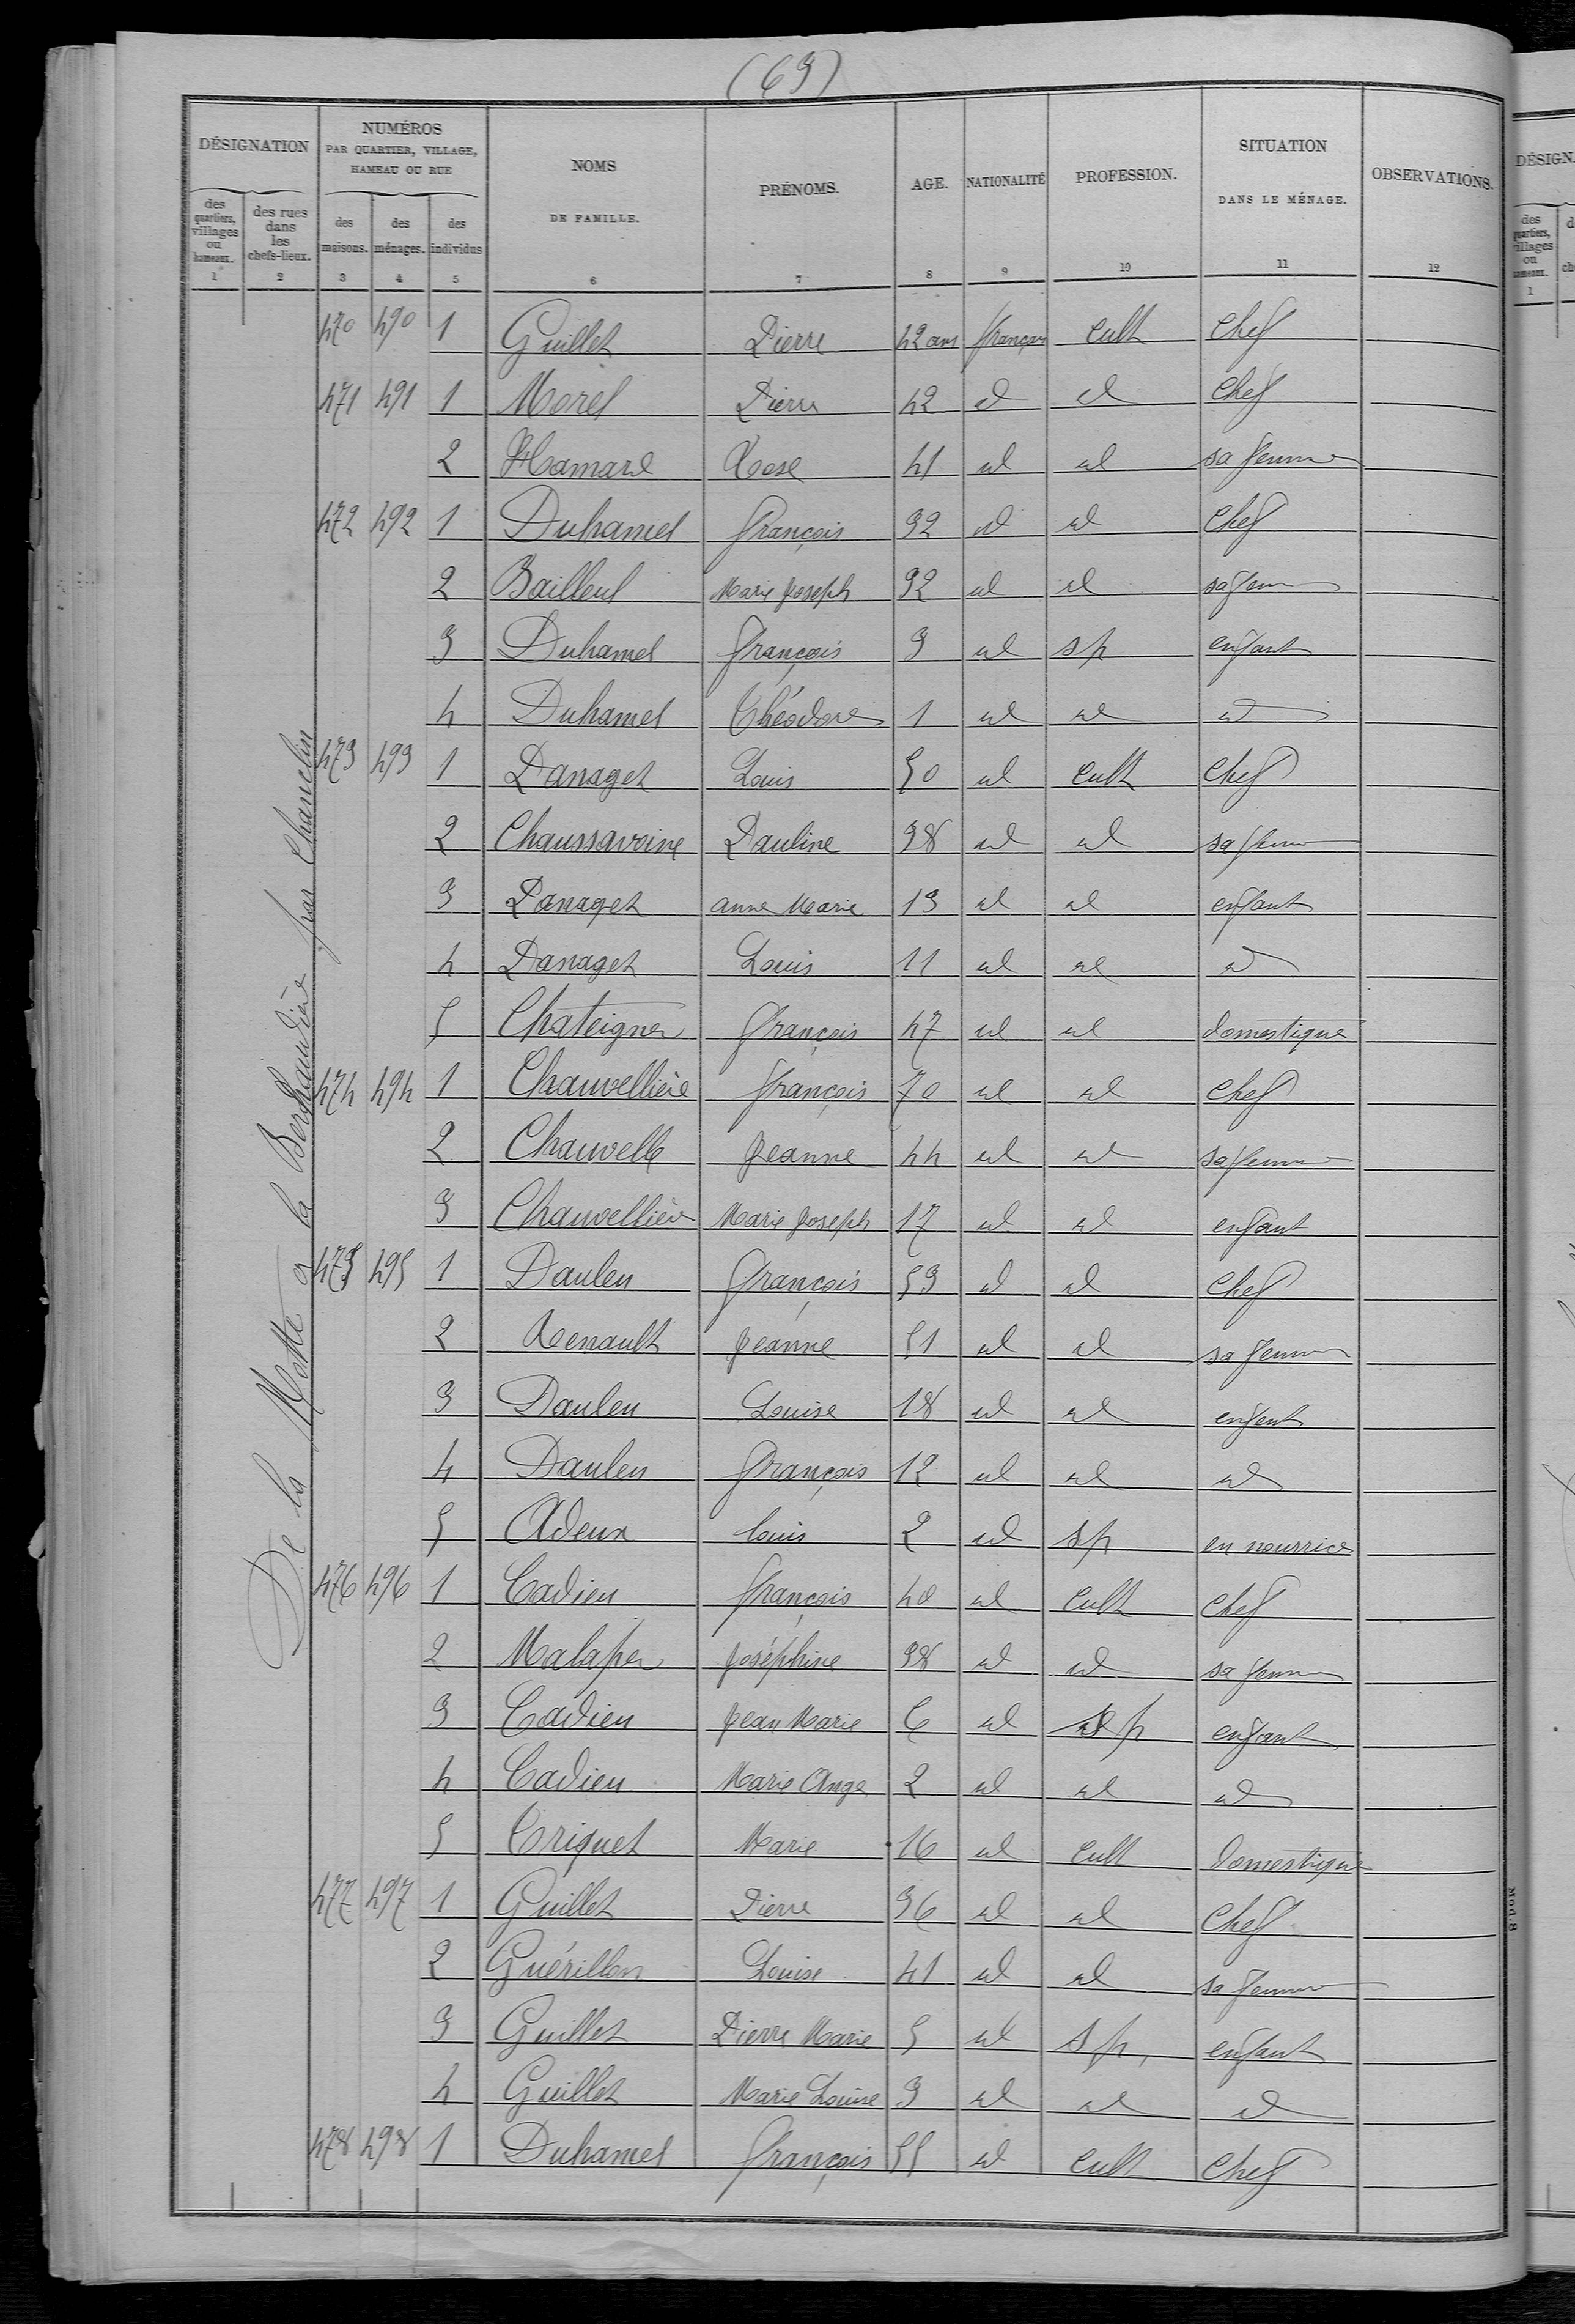 (63)
DÉSIGNATION
NUMÉROS
PAR QUARTIER, VILLAGE,
HAMEAU OU RUE
NOMS
DE FAMILLE.
PRÉNOMS.
AGE.
NATIONALITÉ
PROFESSION.
SITUATION
DANS LE MÉNAGE.
OBSERVATIONS.
des quartiers, villages ou hameaux.
des rues dans les chefs-lieux.
des maisons.
des ménages.
des individus
1 2 3 4 5 6 7 8 9 10 11 12
De la Motte a la Berthaudière par Chanclin
470 490 1 Guillet Pierre 42 ans français Cult Chef
471 491 1 Morel Pierre 42 id id Chef
2 Hamard Rose 41 id id sa femme
472 492 1 Duhamel François 32 id id Chef
2 Bailleul Marie Joseph 32 id id sa fem
3 Duhamel François 3 id sp enfant
4 Duhamel Théodore 1 id id id
473 493 1 Panaget Louis 50 id Cult Chef
2 Chaussavoine Pauline 38 id id sa femme
3 Panaget anne Marie 13 id id enfant
4 Panaget Louis 11 id id id
5 Chateigner François 47 id id domestique
474 494 1 Chauvellière François 70 id id Chef
2 Chauvelle Jeanne 44 id id sa femme
3 Chauvellière Marie Joseph 17 id id enfant
475 495 1 Daulen François 53 id id Chef
2 Renault Jeanne 51 id id sa femme
3 Daulen Louise 18 id id enfant
4 Daulen François 12 id id id
5 Adeux louis 2 id sp en nourrice
476 496 1 Cadieu François 40 id Cult Chef
2 Malaper Joséphine 38 id id sa femme
3 Cadieu Jean Marie 6 id sp enfant
4 Cadieu Marie Ange 2 id id id
5 Criquet Marie 16 id Cult Domestique
477 497 1 Guillet Pierre 36 id id Chef
2 Guérillon Louise 41 id id sa femme
3 Guillet Pierre Marie 5 id sp, enfant
4 Guillet Marie Louise 3 id id id
478 498 1 Duhamel François 55 id Cult Chef
Mod. 8
DÉSIGN
des quartiers, villages ou hameaux.
1